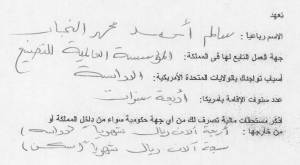 تعهد
الاسم رباعيا : سالم أحمد محمد النجاب
جهة العمل التابع لها في المملكة: المؤسسة العالمية للتصنيع
أسباب تواجدك بالولايات المتحدة الأمريكية: الدراسة
عدد سنوات الإقامة بأمريكا: أربعة سنوات
اذكر مستحقات مالية تصرف لك من أي جهة حكومية سواء من داخل المملكة أو
من خارجها : أربعة آلاف ريال شهريا
سبعة آلاف ريال شهريا (سكن)